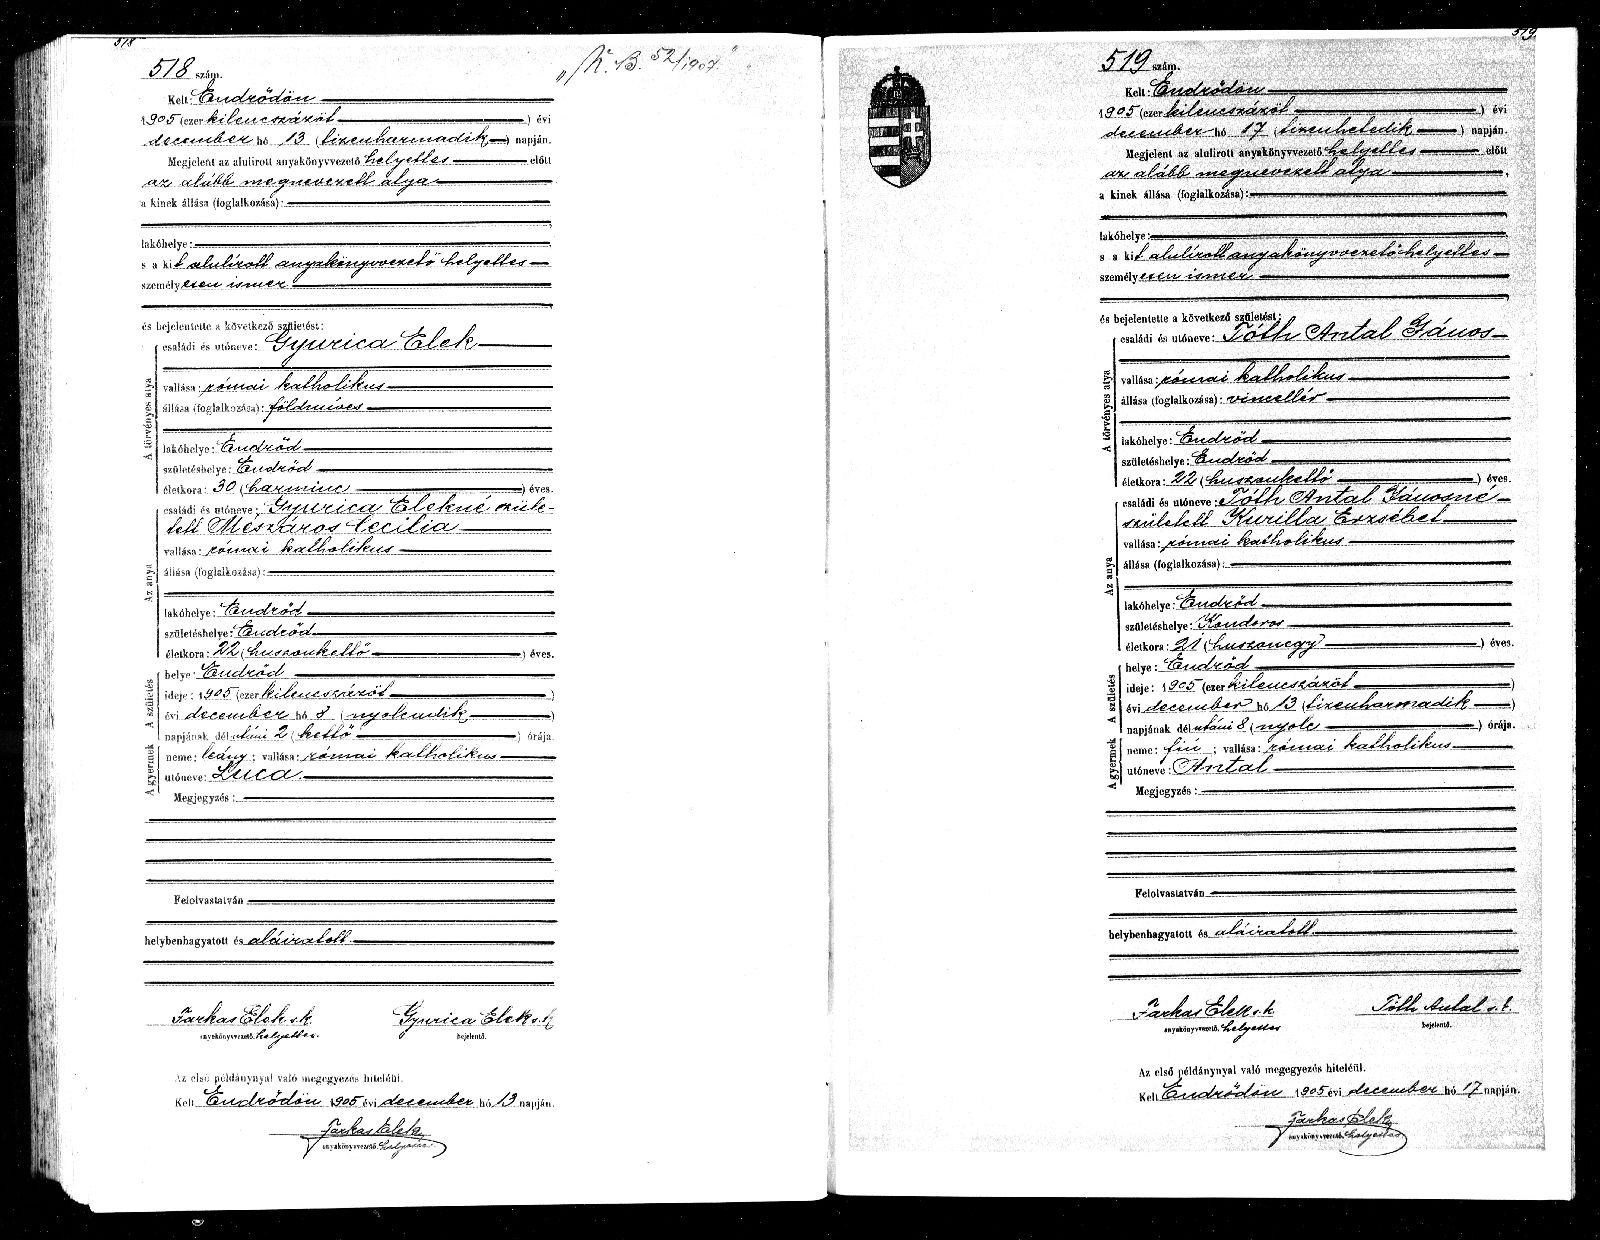 518
518 szám.
„K. B. 52/1907."
Kelt: Endrődön
1905 (ezer kilencszázöt) évi
december hó 13 (tizenharmadik) napján.
Megjelent az alulirott anyakönyvvezető helyettes előtt
az alább megnevezett atya
a kinek állása (foglalkozása):
lakóhelye:
s a kit alulírott anyakönyvvezető helyettes
személyesen ismer
és bejelentette a következő születést:
A törvényes atya
családi és utóneve: Gyurica Elek
vallása: római katholikus
állása (foglalkozása): földmíves
lakóhelye: Endrőd
születéshelye: Endrőd
életkora: 30 (harminc) éves.
Az anya
családi és utóneve: Gyurica Elekné szüle-
tett Mészáros Cecilia
vallása: római katholikus
állása (foglalkozása):
lakóhelye: Endrőd
születéshelye: Endrőd
életkora: 22 (huszonkettő) éves.
A születés
helye: Endrőd
ideje: 1905 (ezer kilencszázöt)
évi december hó 8 (nyolcadik)
napjának délutáni 2 (kettő) órája.
A gyermek
neme: leány; vallása: római katholikus
utóneve: Luca
Megjegyzés:
Felolvastatván
helybenhagyatott és aláiratott.
Farkas Elek s.k. Gyurica Elek s.k
anyakönyvvezető. helyettes. bejelentő.
Az első példánynyal való megegyezés hiteléül.
Kelt Endrődön 1905 évi december hó 13 napján.
Farkas Elek
anyakönyvvezető. helyettes
519.
519 szám.
Kelt: Endrődön
1905 (ezer kilencszázöt) évi
december hó 17 (tizenhetedik) napján.
Megjelent az alulirott anyakönyvvezető helyettes előtt
az alább megnevezett atya,
a kinek állása (foglalkozása):
lakóhelye:
s a kit alulírott anyakönyvvezető helyettes
személyesen ismer
és bejelentette a következő születést:
A törvényes atya
családi és utóneve: Tóth Antal János
vallása: római katholikus
állása (foglalkozása): vincellér
lakóhelye: Endrőd
születéshelye: Endrőd
életkora: 22 (huszonkettő) éves.
Az anya
családi és utóneve: Tóth Antal Jánosné
született Kurilla Erzsébet
vallása: római katholikus
állása (foglalkozása):
lakóhelye: Endrőd
születéshelye: Kondoros
életkora: 21 (huszonegy) éves.
A születés
helye: Endrőd
ideje: 1905 (ezer kilencszázöt)
évi december hó 13 (tizenharmadik)
napjának délutáni 8 (nyolc) órája.
A gyermek
neme: fiú; vallása: római katholikus
utóneve: Antal
Megjegyzés:
Felolvastatván
helybenhagyatott és aláiratott.
Farkas Elek s.k. Tóth Antal s.k.
anyakönyvvezető. helyettes bejelentő.
Az első példánynyal való megegyezés hiteléül.
Kelt Endrődön 1905 évi december hó 17 napján.
Farkas Elek
anyakönyvvezető. helyettes